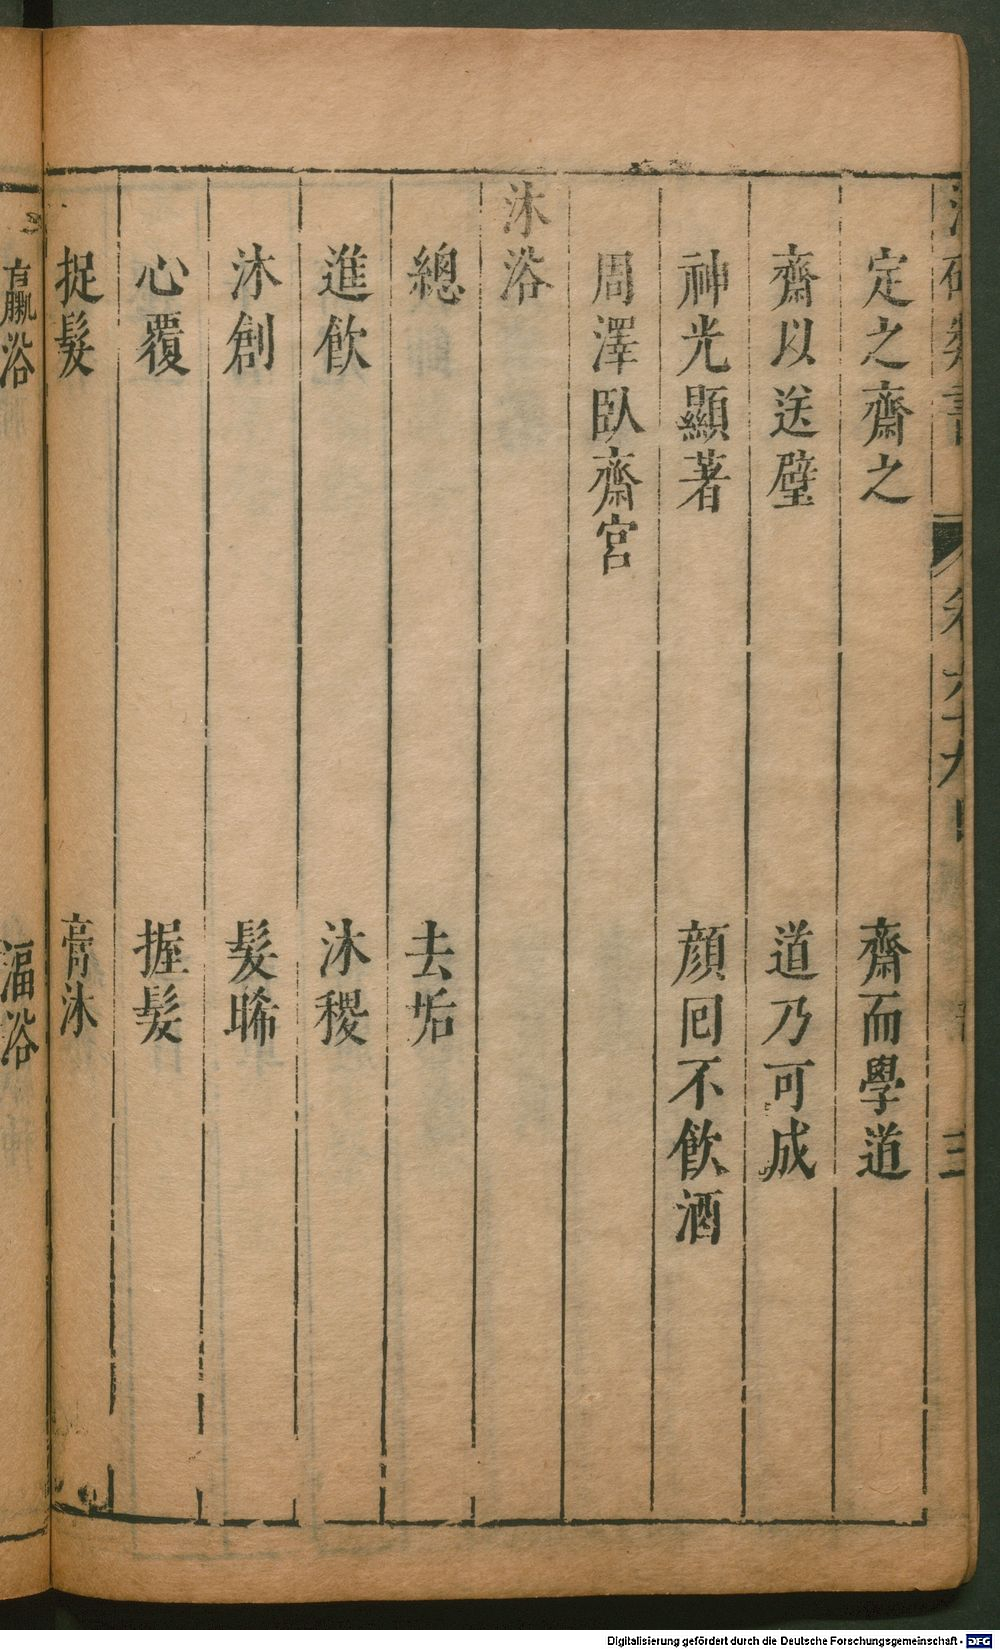 定之齋之　齋而學道
齋以送璧　道乃可成
神光顯著　顔回不飲酒
周澤臥齋宮
沐浴
總　去垢
進飲　沐稷
沐創　髮晞
心覆　握髮
捉髮　膏沐
浴　湢浴
Digitalisierung gefördert durch die Deutsche Forschungsgemeinschaft - DFG